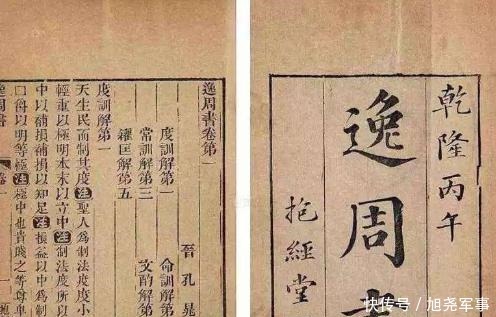 乾隆丙午
逸周書
抱經堂
逸周書卷第一
晉 孔晁
度訓解第一 命訓解第
常訓解第三 文酌解第
糴匡解第五
度訓解第一
天生民而制其度注聖人爲制法度度小
輕重以極明本末以立中注制法度所以
中以補損補損以知足注損益以中爲制
□爵以明等極注極中也貴賤之等尊卑
逸周書 卷一
快传号/旭尧军事